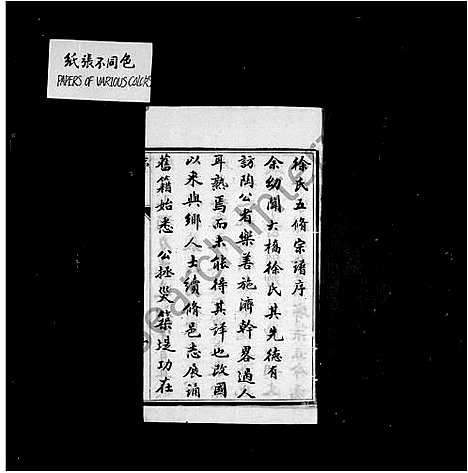 纸張不同色
PAPERS OF VARIOUS COLORS
徐氏五修宗譜序
余幼聞大橋徐氏其先德有
訪陶公者樂善施濟幹畧過人
耳熟焉而未能得其詳也改國
以來與鄉人士續修邑志展誦
舊籍始悉 公拯災築堤功在